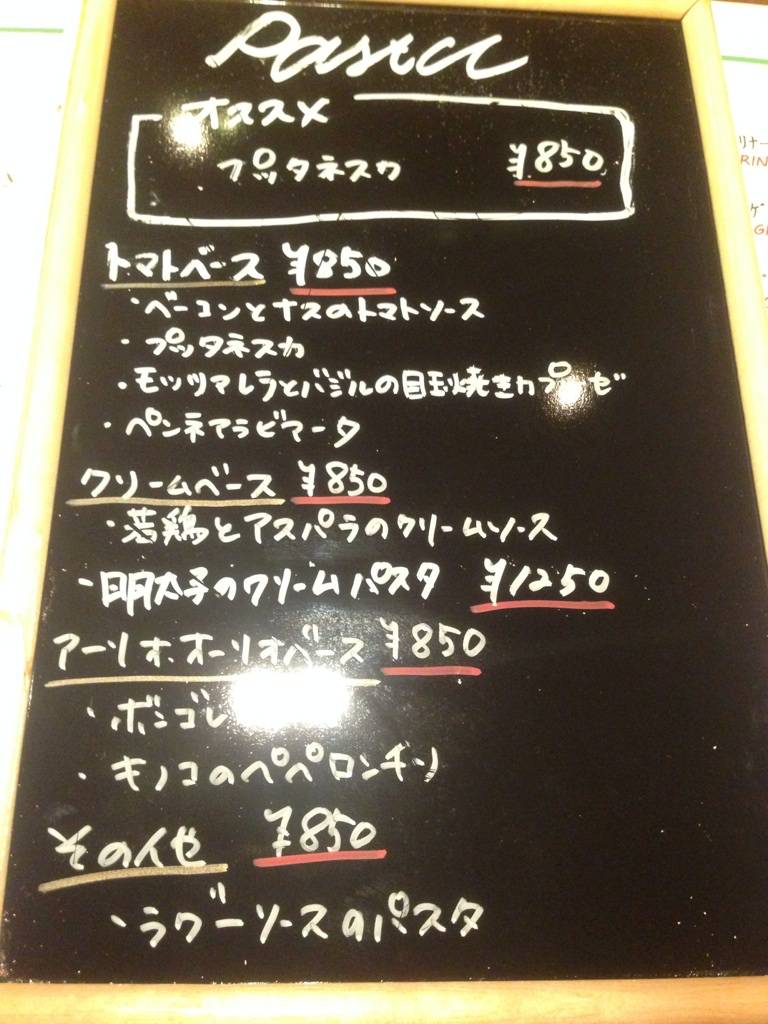 Pasta
オススメ
プッタネスカ ¥850
トマトベース ¥850
・ベーコンとナスのトマトソース
・プッタネスカ
・モッツマレラとバジルの目玉焼きカプーゼ
・ペンネアラビアータ
クリームベース ¥850
・若鶏とアスパラのクリームソース
・明太子のクリームパスタ ¥1250
アーリオ.オーリオベース ¥850
・ボンゴレ
・キノコのペペロンチーノ
その他 ¥850
・ラグーソースのパスタ
リナー
RIN